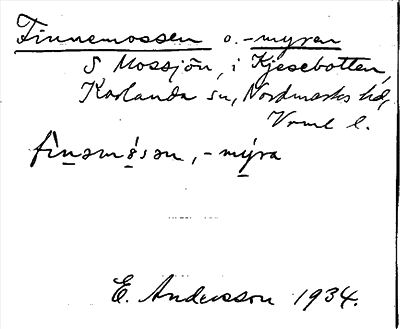 Finnemossen o. -myren
S Mossjön, i Kjesebotten,
Karlanda sn, Nordmarks hd,
Vrml l.
fìnəmósən, -mýra
E. Andersson 1934.